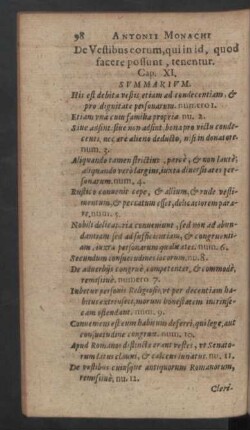 98 ANTONII MONACHI
De Vestibus eorum, qui in id, quod
facere possunt, tenentur.
Cap. XI.
SVMMARIVM.
Illis est debita vestis, etiam ad condecentiam, &
pro dignitate personarum. numero 1.
Etiam vna cum familia propria. nu. 2.
num. 3.
Aliquando tamen strictim, parcè, & non lautè:
aliquando verò largius, iuxta diuersitates per-
sonarum. num. 4.
Rustico conuenit cepe, & allium, & rude vesti-
mentum, & peccatum esset, delicatiorem para-
re. num. 5.
Nobili delicatiora conueniunt, sed non ad abun-
dantiam sed ad sufficientiam, & congruenti-
am, iuxta personarum qualitates. num. 6.
Secundum consuetudines locorum. nu. 8.
De aduerbijs congruè, competenter, & commodè,
remissiuè. numero 7.
Iubetur personis Religiosis, vt per decentiam ha-
bitus extrinseci, morum honestatem intrinse-
cam ostendant. num. 9.
Conuemens est eum habitum deferri, qui lege, aut
consuetudine congruit. num. 10.
Apud Romanos distincta erant vestes, vt Senato-
rum latus clauus, & calceus lunatus. nu. 11.
De vestibus cuiusque antiquorum Romanorum,
remissiuè, nu. 12.
Cleri-